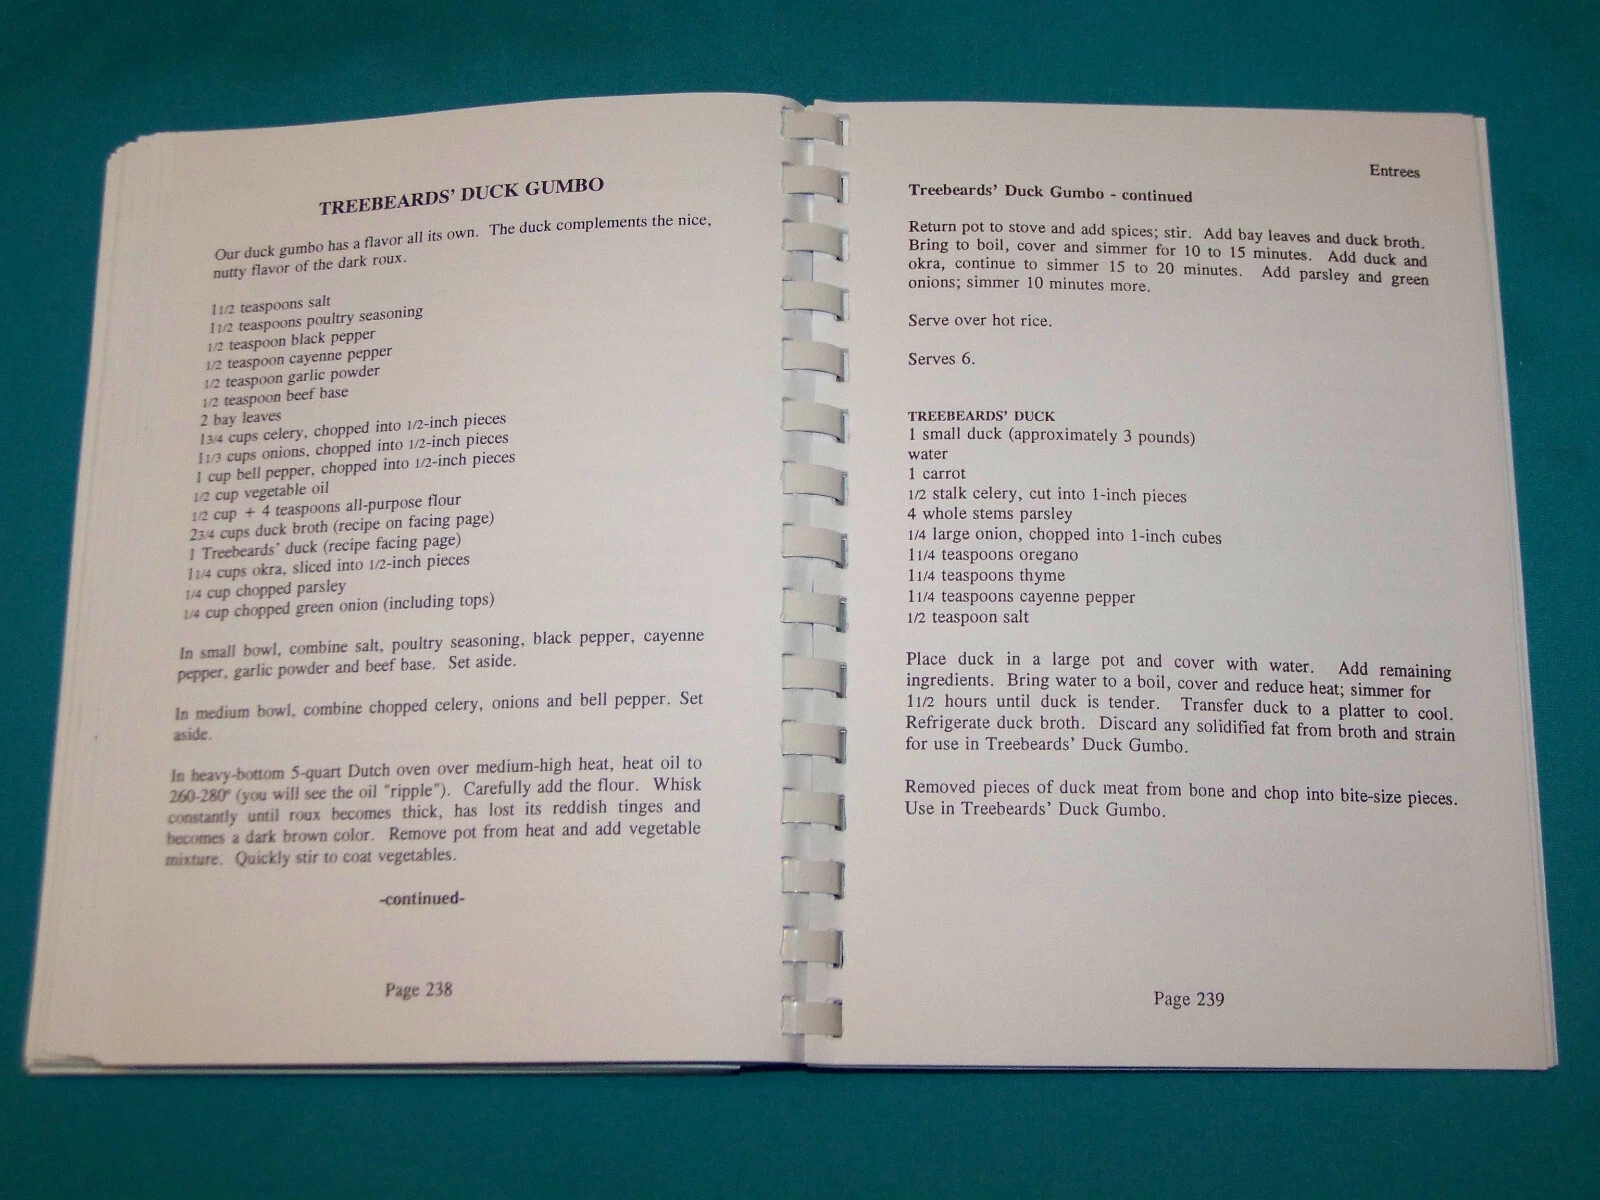 TREEBEARDS' DUCK GUMBO
Our duck gumbo has a flavor all its own. The duck complements the nice,
nutty flavor of the dark roux.
1 1/2 teaspoons salt
1 1/2 teaspoons poultry seasoning
1/2 teaspoon black pepper
1/2 teaspoon cayenne pepper
1/2 teaspoon garlic powder
1/2 teaspoon beef base
2 bay leaves
1 3/4 cups celery, chopped into 1/2-inch pieces
1 1/3 cups onions, chopped into 1/2-inch pieces
1 cup bell pepper, chopped into 1/2-inch pieces
1/2 cup vegetable oil
1/2 cup + 4 teaspoons all-purpose flour
2 3/4 cups duck broth (recipe on facing page)
1 Treebeards' duck (recipe facing page)
1 1/4 cups okra, sliced into 1/2-inch pieces
1/4 cup chopped parsley
1/4 cup chopped green onion (including tops)
In small bowl, combine salt, poultry seasoning, black pepper, cayenne
pepper, garlic powder and beef base. Set aside.
In medium bowl, combine chopped celery, onions and bell pepper. Set
aside.
In heavy-bottom 5-quart Dutch oven over medium-high heat, heat oil to
260-280° (you will see the oil "ripple"). Carefully add the flour. Whisk
constantly until roux becomes thick, has lost its reddish tinges and
becomes a dark brown color. Remove pot from heat and add vegetable
mixture. Quickly stir to coat vegetables.
-continued-
Page 238
Entrees
Treebeards' Duck Gumbo - continued
Return pot to stove and add spices; stir. Add bay leaves and duck broth.
Bring to boil, cover and simmer for 10 to 15 minutes. Add duck and
okra, continue to simmer 15 to 20 minutes. Add parsley and green
onions; simmer 10 minutes more.
Serve over hot rice.
Serves 6.
TREEBEARDS' DUCK
1 small duck (approximately 3 pounds)
water
1 carrot
1/2 stalk celery, cut into 1-inch pieces
4 whole stems parsley
1/4 large onion, chopped into 1-inch cubes
1 1/4 teaspoons oregano
1 1/4 teaspoons thyme
1 1/4 teaspoons cayenne pepper
1/2 teaspoon salt
Place duck in a large pot and cover with water. Add remaining
ingredients. Bring water to a boil, cover and reduce heat; simmer for
1 1/2 hours until duck is tender. Transfer duck to a platter to cool.
Refrigerate duck broth. Discard any solidified fat from broth and strain
for use in Treebeards' Duck Gumbo.
Removed pieces of duck meat from bone and chop into bite-size pieces.
Use in Treebeards' Duck Gumbo.
Page 239